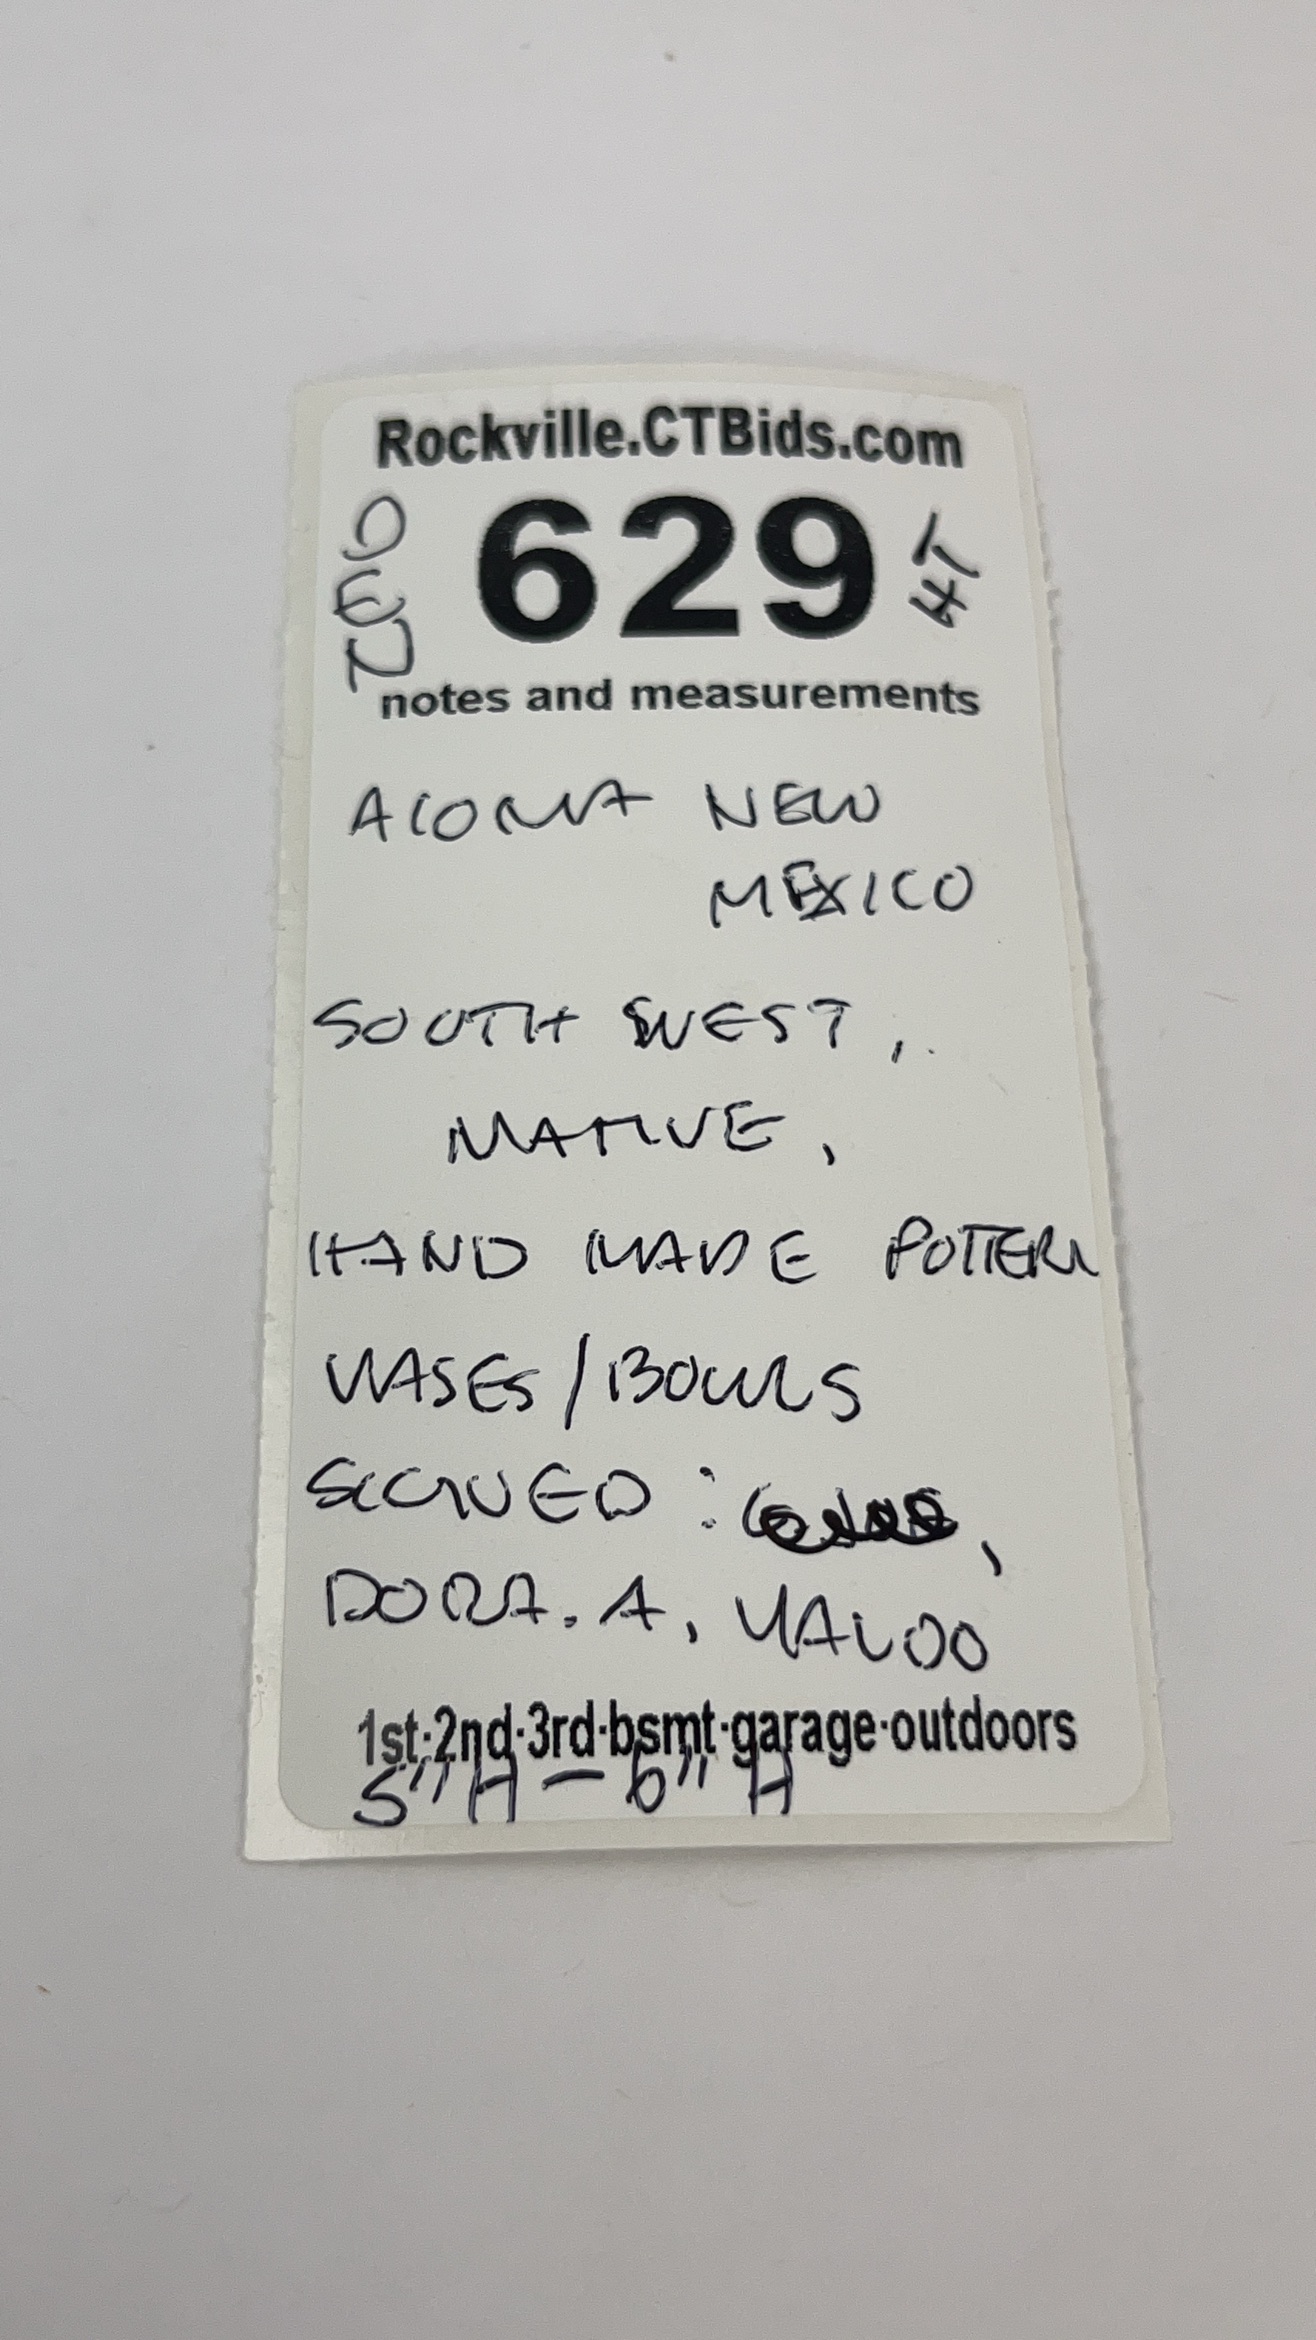 Rockville.CTBids.com
629
HT
notes and measurements
ACOMA NEW
MEXICO
SOUTH WEST,
NATIVE,
HAND MADE POTTERY
VASES/BOWLS
SIGNED:
DORA. A, YALOO
1st·2nd·3rd·bsmt·garage·outdoors
5" H - 6" H